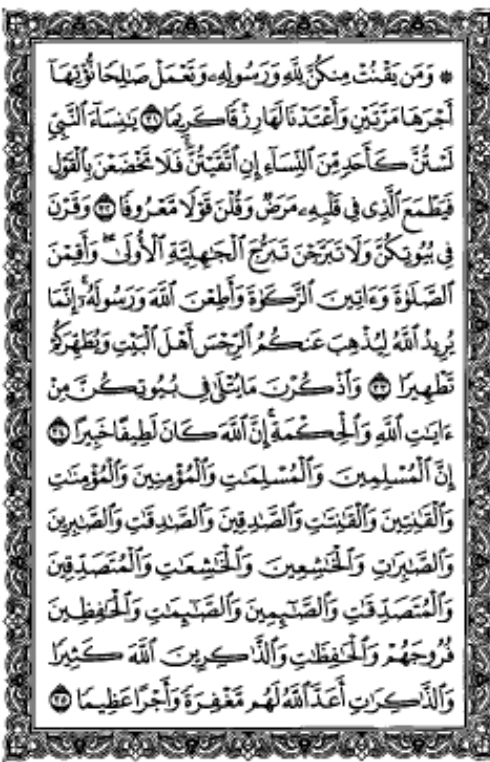 ۞ وَمَن يَقْنُتْ مِنكُنَّ لِلَّهِ وَرَسُولِهِۦ وَتَعْمَلْ صَٰلِحًا نُّؤْتِهَآ
أَجْرَهَا مَرَّتَيْنِ وَأَعْتَدْنَا لَهَا رِزْقًا كَرِيمًا ٣١ يَٰنِسَآءَ ٱلنَّبِيِّ
لَسْتُنَّ كَأَحَدٍ مِّنَ ٱلنِّسَآءِ إِنِ ٱتَّقَيْتُنَّۚ فَلَا تَخْضَعْنَ بِٱلْقَوْلِ
فَيَطْمَعَ ٱلَّذِى فِى قَلْبِهِۦ مَرَضٌ وَقُلْنَ قَوْلًا مَّعْرُوفًا ٣٢ وَقَرْنَ
فِى بُيُوتِكُنَّ وَلَا تَبَرَّجْنَ تَبَرُّجَ ٱلْجَٰهِلِيَّةِ ٱلْأُولَىٰۖ وَأَقِمْنَ
ٱلصَّلَوٰةَ وَءَاتِينَ ٱلزَّكَوٰةَ وَأَطِعْنَ ٱللَّهَ وَرَسُولَهُۥٓۚ إِنَّمَا
يُرِيدُ ٱللَّهُ لِيُذْهِبَ عَنكُمُ ٱلرِّجْسَ أَهْلَ ٱلْبَيْتِ وَيُطَهِّرَكُمْ
تَطْهِيرًا ٣٣ وَٱذْكُرْنَ مَا يُتْلَىٰ فِى بُيُوتِكُنَّ مِنْ
ءَايَٰتِ ٱللَّهِ وَٱلْحِكْمَةِۚ إِنَّ ٱللَّهَ كَانَ لَطِيفًا خَبِيرًا ٣٤
إِنَّ ٱلْمُسْلِمِينَ وَٱلْمُسْلِمَٰتِ وَٱلْمُؤْمِنِينَ وَٱلْمُؤْمِنَٰتِ
وَٱلْقَٰنِتِينَ وَٱلْقَٰنِتَٰتِ وَٱلصَّٰدِقِينَ وَٱلصَّٰدِقَٰتِ وَٱلصَّٰبِرِينَ
وَٱلصَّٰبِرَٰتِ وَٱلْخَٰشِعِينَ وَٱلْخَٰشِعَٰتِ وَٱلْمُتَصَدِّقِينَ
وَٱلْمُتَصَدِّقَٰتِ وَٱلصَّٰٓئِمِينَ وَٱلصَّٰٓئِمَٰتِ وَٱلْحَٰفِظِينَ
فُرُوجَهُمْ وَٱلْحَٰفِظَٰتِ وَٱلذَّٰكِرِينَ ٱللَّهَ كَثِيرًا
وَٱلذَّٰكِرَٰتِ أَعَدَّ ٱللَّهُ لَهُم مَّغْفِرَةً وَأَجْرًا عَظِيمًا ٣٥